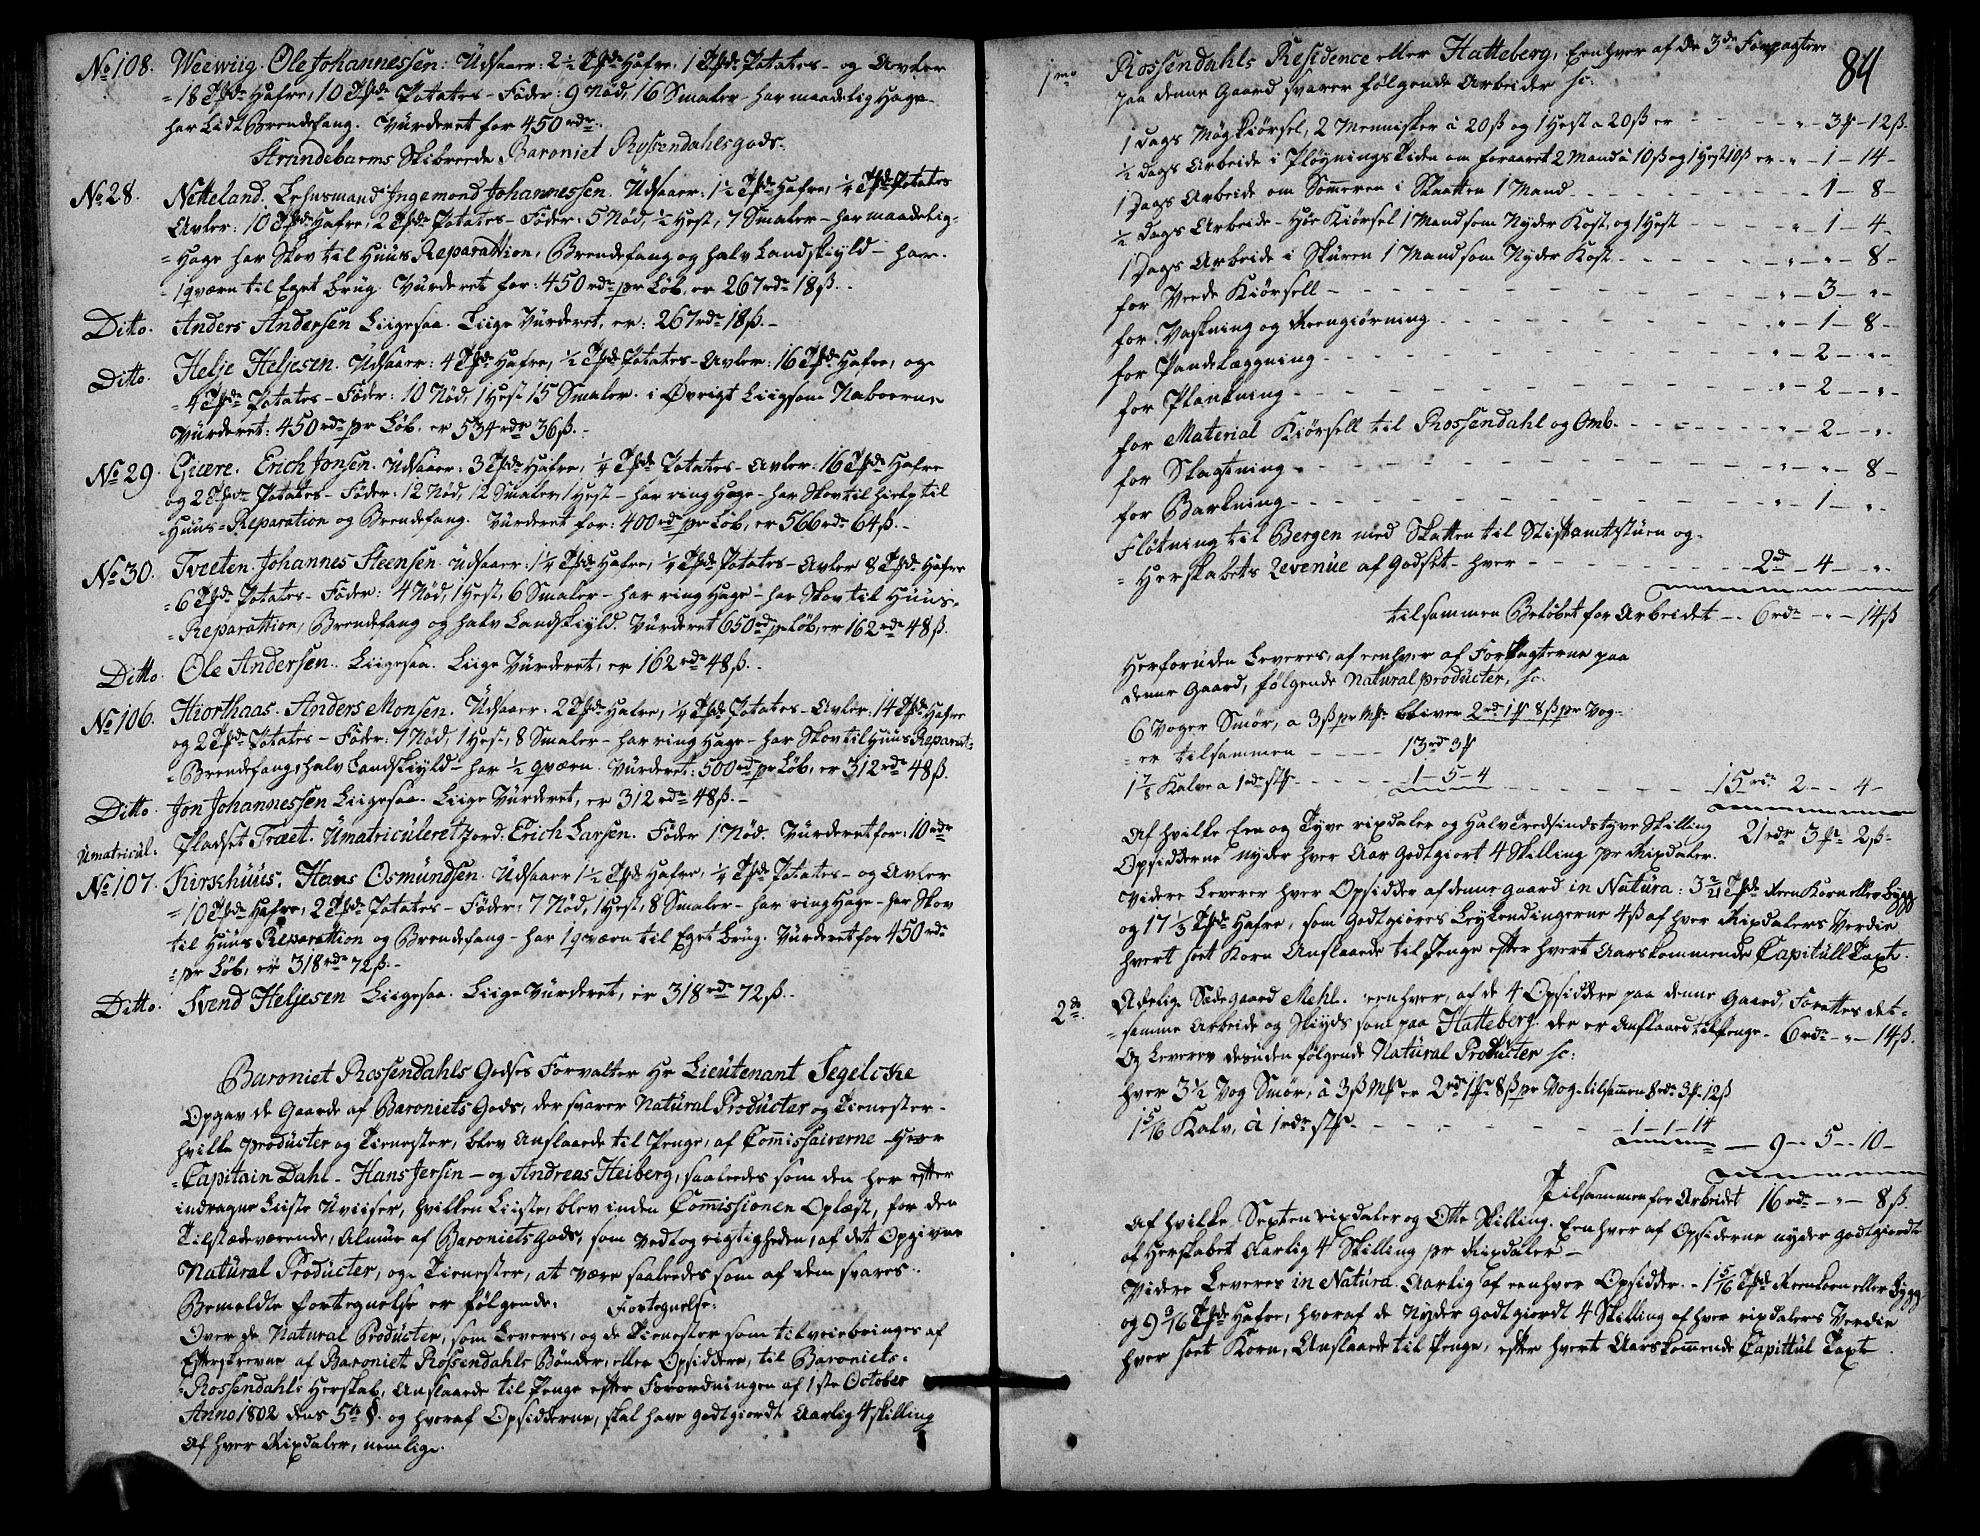 No 108. Weewiig. Ole Johannessen. Udsaaer: 2½ Tdr Hafre, 1 Tde Potates – og Avler
18 Tdr Hafre, 10 Tdr Potates – Föder: 9 Nöd, 16 Smaler – har maadelig Hage –
har Lidt Brendefang. Vürderet for 450 rdr.
Strandebarms Skibrede Baroniet Rossendahls gods.
No 28. Netteland. Lehnsmand Ingemond Johannessen. Udsaaer: 1½ Tde Hafre, ¼ Tde Potates
Avler: 10 Tdr Hafre, 2 Tdr Potates – Föder: 5 Nöd, ½ Hest, 7 Smaler – har maadelig
Hage har Skov til Huus Reparattion, Brendefang og halv Landskiyld – har
1 qværn til Eget brüg. Vürderet for: 450 rdr pr Löb, er 267 rdr 18 ß.
Ditto. Anders Andersen Liigesaa. Liige Vürderet, er: 267 rdr 18 ß. –
Ditto. Helje Heljesen. Udsaaer: 4 Tdr Hafre, ½ Tde Potates – Avler: 16 Tdr Hafre, og
4 Tdr Potates – Föder: 10 Nöd, 1 Hest 15 Smaler. i Øvrigt Liigsom Naboerne
Vürderet: 450 rdr pr Löb. er 534 rdr 36 ß.
No 29. Giære. Erich Jonsen. Udsaaer: 3 Tdr Hafre, ¼ Tde Potates – Avler: 16 Tdr Hafre
og 2 Tdr Potates – Föder: 12 Nöd, 12 Smaler, 1 Hest – har ring Hage – har Skov til hielp til
Huus Reparation og Brendefang. Vürderet for: 400 rdr pr Löb, er 566 rdr 64 ß. –
No 30. Tveten. Johannes Steensen. Udsaaer: 1¼ Tde Hafre, ¼ Tde Potates – Avler 8 Tdr Hafre
6 Tdr Potates – Föder: 4 Nöd, 1 Hest, 6 Smaler – har ring Hage – har Skov til Huus
Reparattion, Brendefang og halv Landskiyld. Vürderet 650 rdr pr Löb, er 162 rdr 48 ß.
Ditto. Ole Andersen. Liigesaa. Liige Vürderet, er 162 rdr 48 ß.
No 106. Hiorthaas. Anders Monsen. Udsaaer: 2 Tdr Hafre, ¼ Tde Potates – Avler: 14 Tdr Hafre
og 2 Tdr Potates – Föder: 7 Nöd, 1 Hest, 8 Smaler – har ring Hage – har Skov til Huus Reparat:
Brendefang, halv Landskiyld – har ½ qværn. Vürderet: 500 rdr pr Löb, er 312 rdr 48 ß.
Ditto. Jon Johannessen Liigesaa. Liige Vürderet, er 312 rdr 48 ß. –
Umatricul: Pladset Træet. Umatriculeret Jord. Erich Larsen. Föder 1 Nöd. Vürderet for: 10 rdr
No 107. Kirkhuus. Hans Osmundsen. Udsaaer 1½ Tde Hafre, ¼ Tde Potates – og Avler
10 Tdr Hafre, 2 Tdr Potates – Föder: 7 Nöd, 1 Hest, 8 Smaler – har ring Hage – har Skov
til Huus Reparattion og Brendefang – har 1 qværn til Eget brüg. Vürderet for 450 rdr
pr Löb, er 318 rdr 72 ß. –
Ditto. Svend Heljesen Liigesaa. Liige Vürderet, er 318 rdr 72 ß.
Baroniet Rossendahls Godses Forvalter Hr Lieutenant Segelcke
Opgav de Gaarde af Baroniets Gods, der svarer Natural Producter og Tienester –
hvilke producter og Tienester, blev Anslaaede til Penge, af Commissairerne Herr
Capitain Dahl – Hans Jersin – og Andreas Heiberg, saaledes som den her efter
indragne Liiste Udviiser, hvilken Liiste, blev inden Commissionen Oplæst, for den
Tilstædeværende, Almue af Baroniets Gods, som vedtog rigtigheden, af det Opgivne
Natural Producter, og Tienester, at være saaledes som af dem svares.
Bemeldte fortegnelse er følgende: Fortegnelse:
Over de Natural Producter, som Leveres, og de Tienester som tilveiebringes af
Efterskrevne af Baroniet Rossendahls Bönder, eller Opsiddere, til Baroniets
Rossendahls Herskab, Anslaaede til Penge efter Forordningen af 1ste October
Anno 1802 dens 5te §. og hvoraf Opsidderne, skal have godtgiordt Aarlig 4 skilling
af hver Rixdaler, nemlig.
84
1mo Rossendahls Residence eller Hatteberg, Eenhver af de 3de Forpagtere
paa denne Gaard svarer følgende Arbeider sc:
1 dags Møg kiørsel, 2 Mennisker à 20 ß og 1 Hest a 20 ß er – „ – 3 – 12 ß.
½ dags Arbeide i Pløynings Tiden om foraaret 2 Mand à 10 ß og 1 Hest 10 ß er – „ – 1 – 14 –
1 dags Arbeide om Sommeren i Slaatten 1 Mand – 1 – 8 –
½ dags Arbeide – Høe Kiørsel 1 Mand som Nyder Kost, og 1 Hest – „ – 1 – 4 –
1 dags Arbeide i Skuren 1 Mand som Nyder Kost – „ – „ – 8 –
for Veede Kiørsell – „ – 3 – „ –
for Vaskning og Reengiørning – „ – 1 – 8 –
for Pandelæggning – „ – 2 – „ –
for Plankning – „ – 2 – „ –
for Material Kiørsell til Rossendahl og Omb. – „ – 2 – „ –
for Slagtning – „ – „ – 8 –
for Barkning – „ – 1 – „ –
Fløtning til Bergen med Skatten til Stiftamtstuen og
Herskabets Revenüe af Godset – hver – 2 rd – 4 – „ –
tilsammen Beløbet for Arbeidet – 6 rdr – „ – 14 ß
Herforuden Leveres, af eenhver af Forpagterne paa
denne Gaard, følgende Natural producter, sc.
6 Voger Smør, a 3 ß pr Mk bliver 2 rd 1 8 ß pr Vog –
er tilsammen – 13 rd 3
1 7/8 Kalve a 1 rdr stk – 1 – 5 – 4 – 15 rdr 2 – 4 –
Af hvilke Een og Tyve rixdaler og halvtredsindstyve Skilling 21 rdr 3 2 ß –
Opsidderne nyder hver Aar Godtgiort 4 Skilling pr Rixdaler.
Videre Leverer hver Opsidder af denne gaard in Natura: 3 Tdr Reen Korn eller bygg
og 17 1/3 Tdr Hafre, som godtgiøres Leylendingerne 4 ß af hver Rixdalers Verdie
hvert sort Korn Anslaaede til Penge efter hvert Aars kommende Capituls Taxt.
2do. Adelig Sædegaard Mehl. eenhver, af de 4 Opsiddere paa denne Gaard, Forrettes det
samme Arbeide og Skyds som paa Hatteberg. der er Anslaaed til Penge – 6 rdr – „ – 14 ß.
Og Leverer desuden følgende Natural Producter sc:
hver 3½ Vog Smør, à 3 ß Mk er 2 rd 1 8 ß pr Vog – tilsammen 8 rdr 3 12 ß
1 5/16 Kalv, à 1 rdr stk – 1 – 1 – 14 – 9 – 5 – 10 –
Tilsammen for Arbeidet 16 rdr – „ – 8 ß.
Af hvilke Sexten rixdaler og Otte Skilling. Eenhver af Opsidderne nyder godtgiordt
af Herskabet Aarlig 4 Skilling pr Rixdaler –
Videre Leveres in Natura Aarlig af eenhver Opsidder – 1 5/16 Tde Reenkorn eller bygg
og 9 3/16 Tdr Hafre, hvoraf de Nyder godtgiordt 4 Skilling af hver rixdalers Verdie
hver sort Korn, Anslaaede til Penge, efter hvert Aars kommende Capittul Taxt.